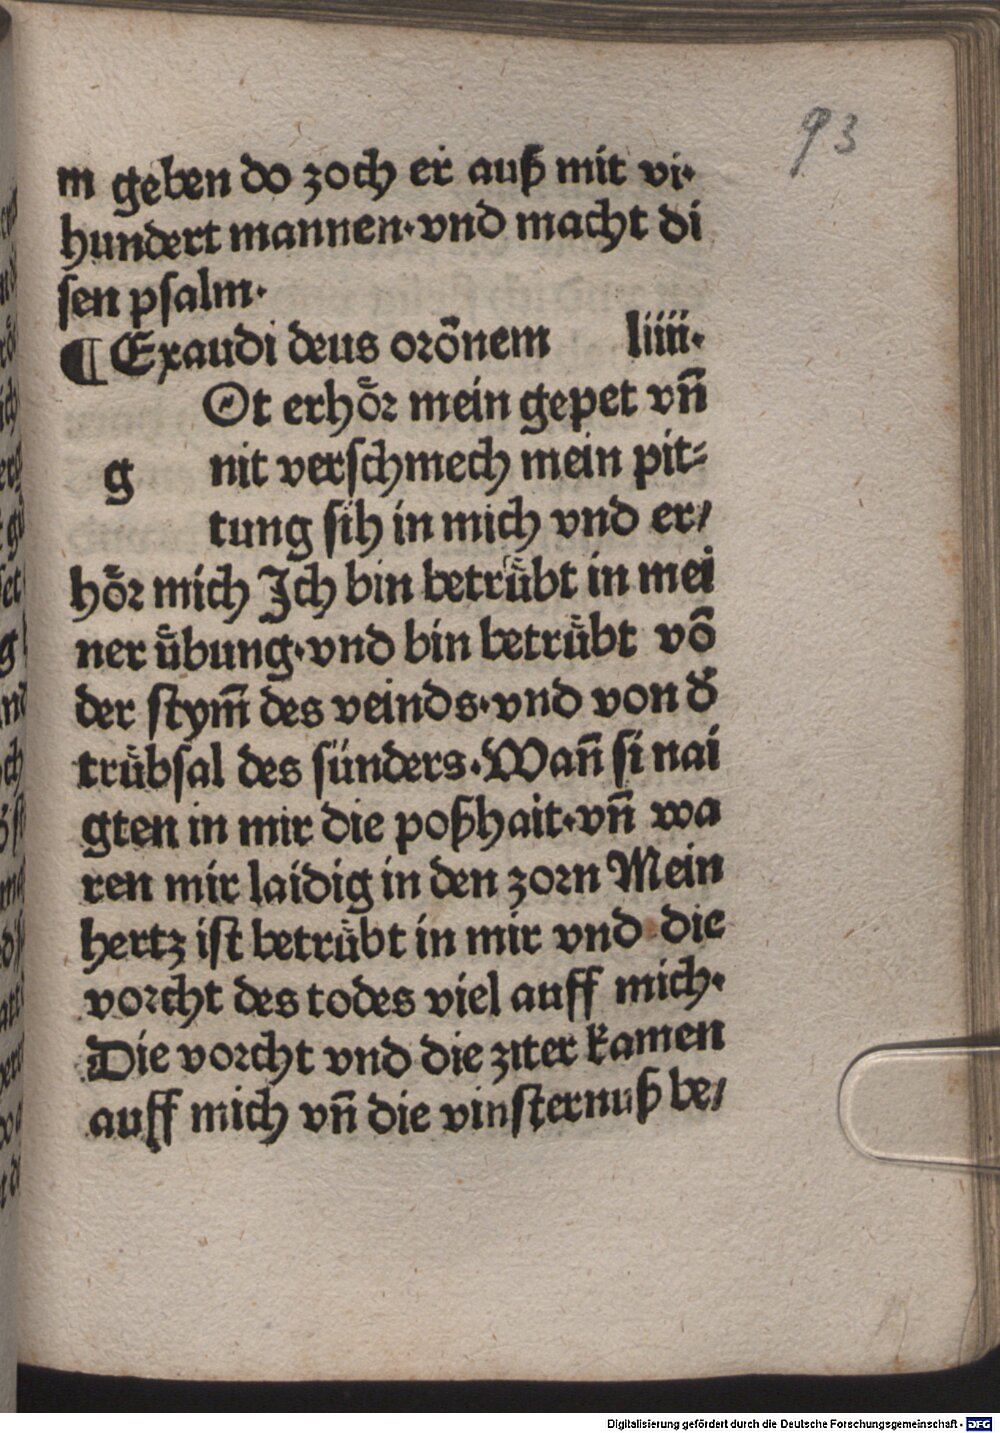 93
m geben do zoch er auß mit vi·
hundert mannen·vnd macht di
sen psalm·
¶ Exaudi deus orõnem liiii·
Ot erhoͤr mein gepet vn̄
g nit verschmech mein pit⸗
tung sih in mich vnd er/
hoͤr mich Ich bin betruͤbt in mei
ner uͤbung·vnd bin betruͤbt võ
der stym̄ des veinds·vnd von d̕
truͤbsal des sünders·Wan̄ si nai
gten in mir die poßhait·vn̄ wa
ren mir laidig in den zorn Mein
hertz ist betruͤbt in mir vnd die
vorcht des todes viel auff mich·
Die vorcht vnd die ziter kamen
auff mich vn̄ die vinsternuß be/
Digitalisierung gefördert durch die Deutsche Forschungsgemeinschaft - DFG